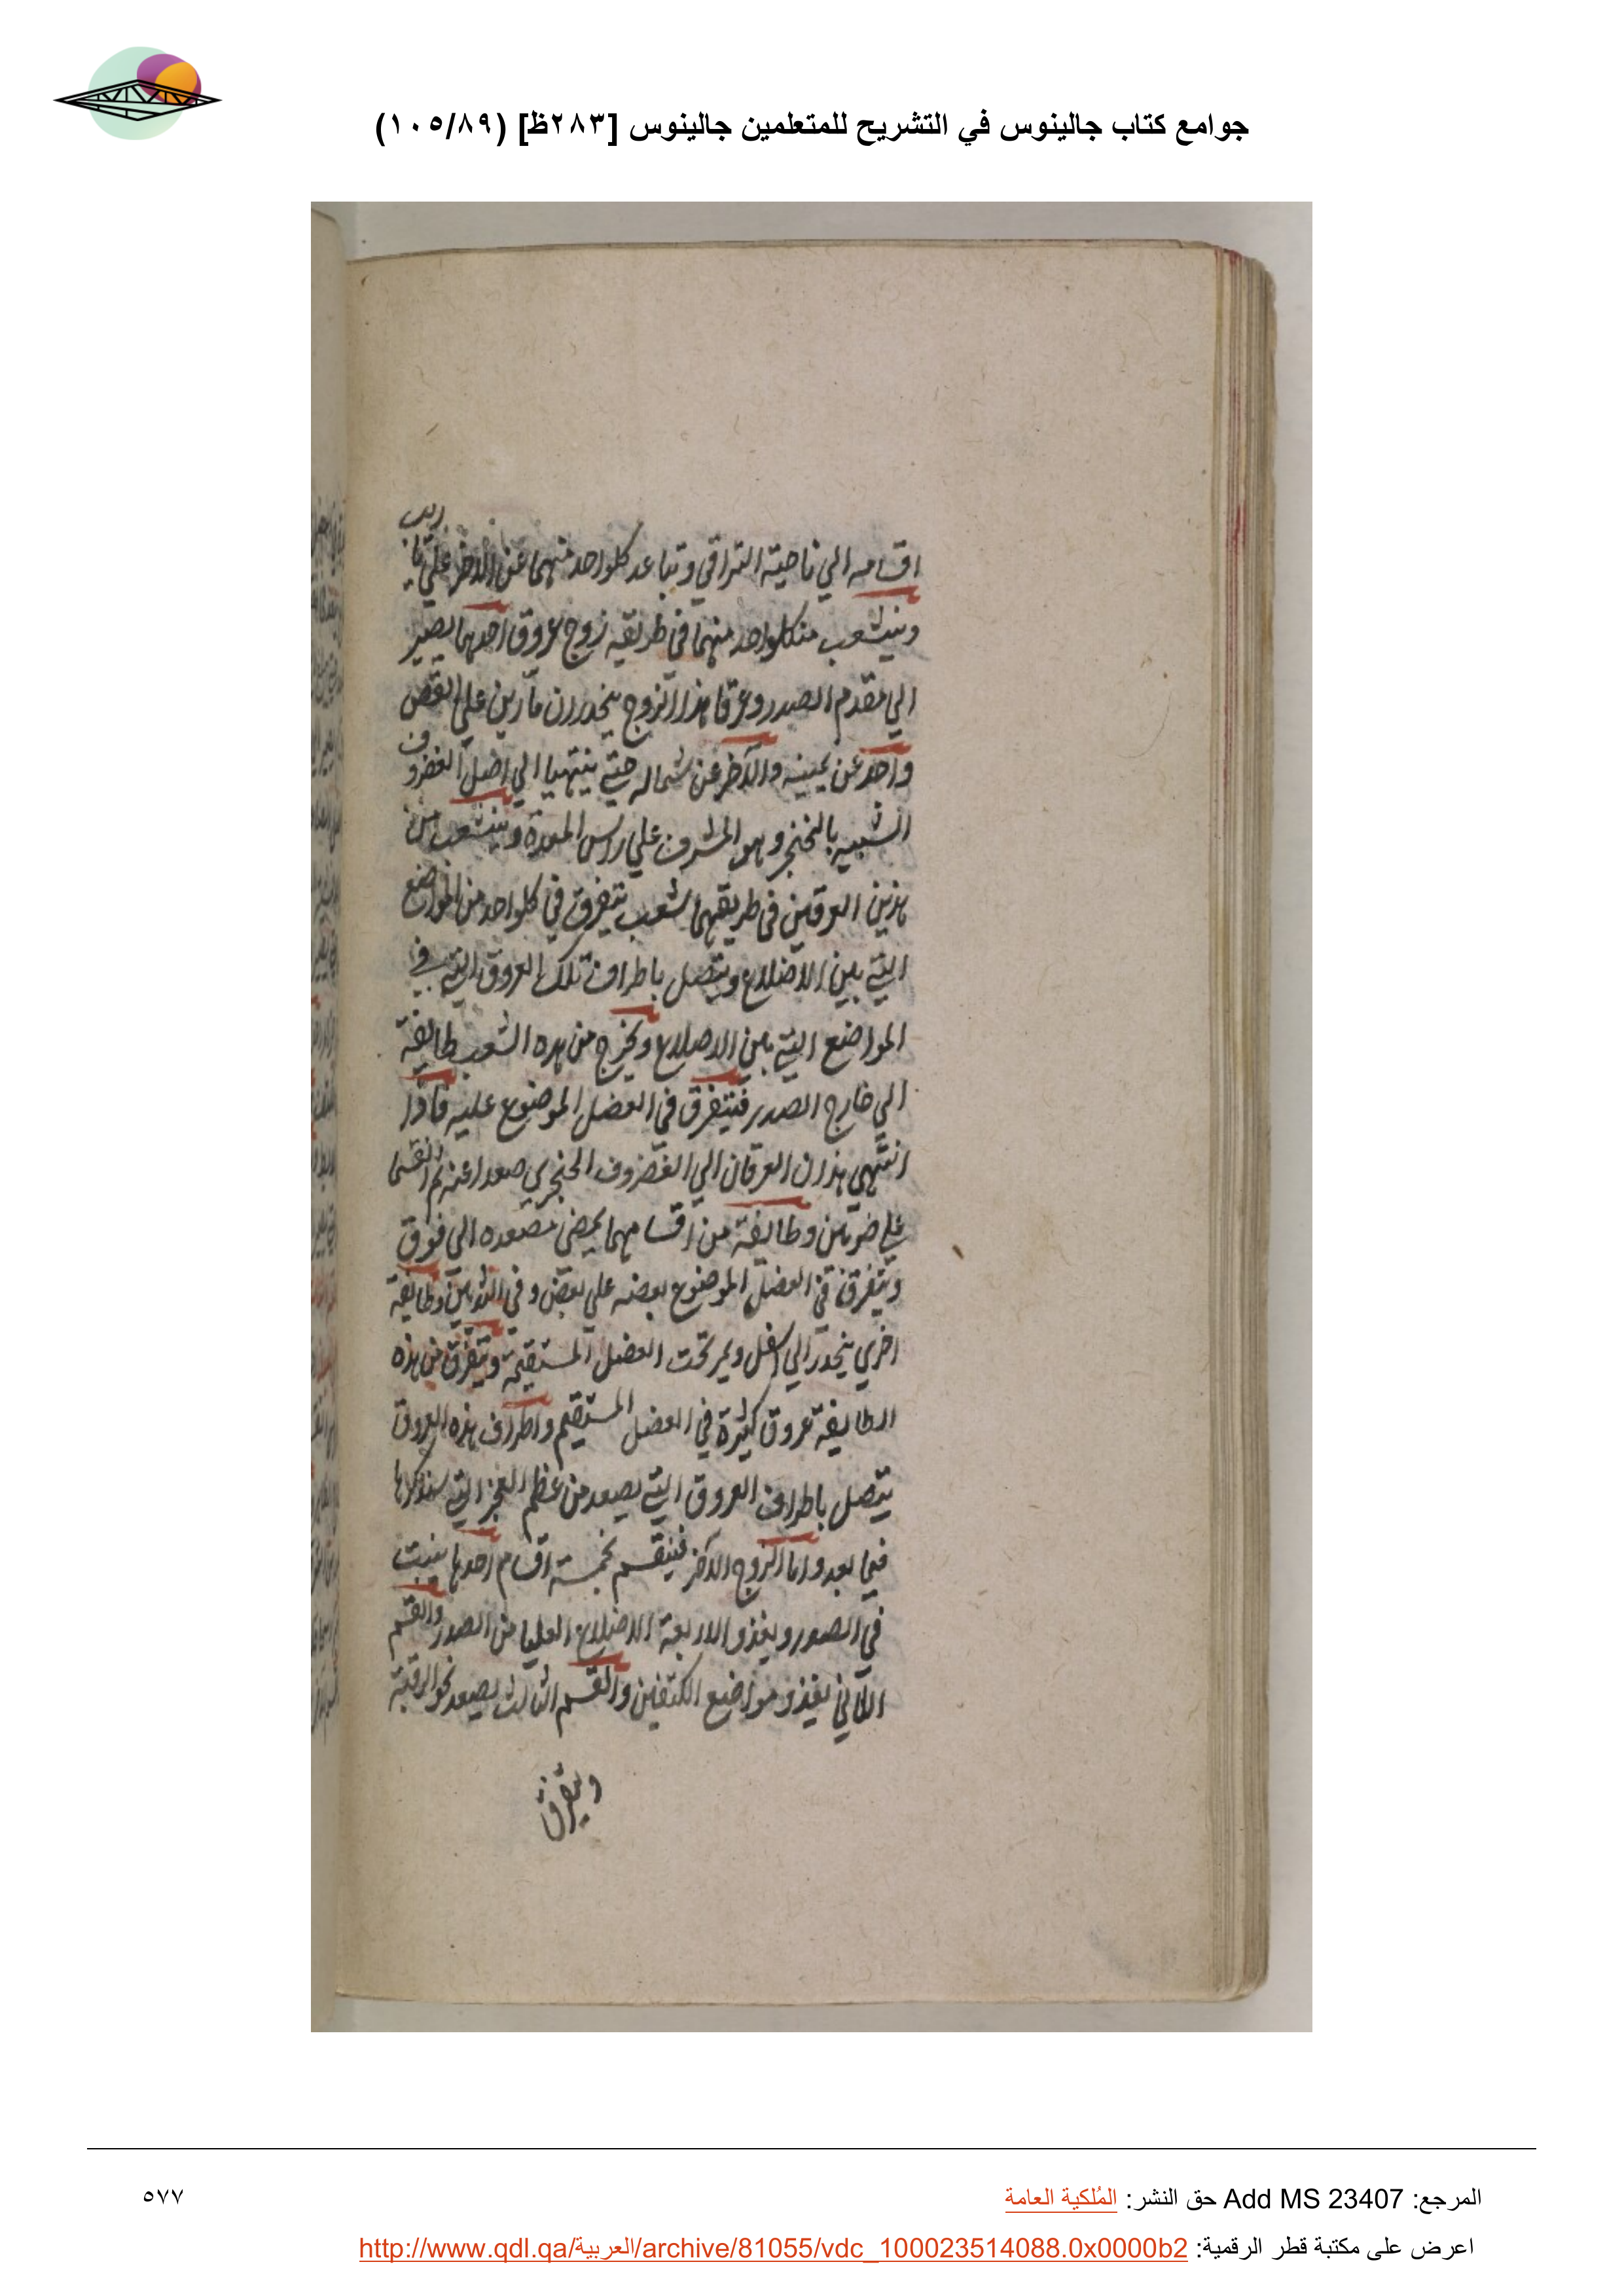 جوامع كتاب جالينوس في التشريح للمتعلمين جالينوس [٢٨٣ظ] (١٠٥/٨٩)
اقسامه الي ناحية التراقي وتباعد كلواحد منهما عن الاخر علي تاريب
وينشعب من كلواحد منهما في طريقه زوج عروق احدهما يصير
الي مقدم الصدر وعرقا هذا الزوج ينحدران مارين علي القص
واحد عن يمينه والآخر عن شماله حتي ينتهيا الي اصل الغضروف
الشبيه بالخنجر وهو المشرف علي راس المعدة وينشعب من
هذين العرقين في طريقهما شعب تتفرق في كلواحد من المواضع
التي بين الاضلاع ويتصل باطراف تلك العروق التي في
المواضع التي بين الاضلاع ويخرج من هذه الشعب طايفة
الي خارج الصدر فيتفرق في العضل الموضوع عليه فاذا
انتهي هذان العرقان الي الغضروف الخنجري صعدا عنه ثم انقسما
علي ضربين وطايفة من اقسامهما يمضي مصعده الي فوق
ويتفرق في العضل الموضوع بعضه علي بعض وفي الثديين وطايفة
اخري ينحدر الي اسفل ويمر تحت العضل المستقيمة ويتفرق من هذه
الطايفة عروق كثيرة في العضل المستقيم واطراف هذه العروق
يتصل باطراف العروق التي يصعد من عظم العجز التي سنذكرها
فيما بعد واما الزوج الآخر فينقسم بخمسة اقسام احدها ينبت
في الصدر ويغذو الاربعة الاضلاع العليا من الصدر والقسم
الثاني يغذو مواضع الكتفين والقسم الثالث يصعد نحو الرقبة
ويتفرق
المرجع: Add MS 23407 حق النشر: المُلكية العامة
٥٧٧
اعرض على مكتبة قطر الرقمية: http://www.qdl.qa/العربية/archive/81055/vdc_100023514088.0x0000b2